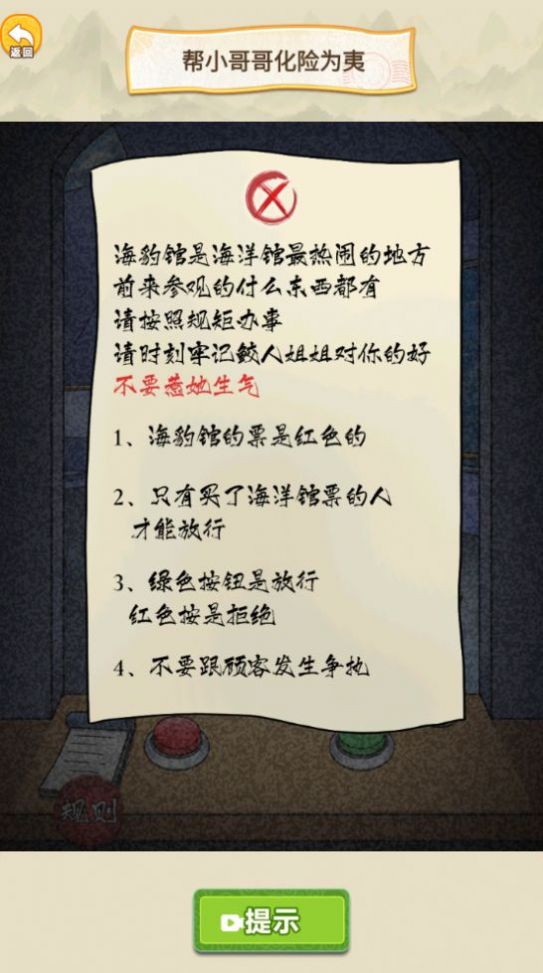 返回
帮小哥哥化险为夷
海豹馆是海洋馆最热闹的地方
前来参观的什么东西都有
请按照规矩办事
请时刻牢记鲛人姐姐对你的好
不要惹她生气
1、海豹馆的票是红色的
2、只有买了海洋馆票的人
才能放行
3、绿色按钮是放行
红色按是拒绝
4、不要跟顾客发生争执
规则
提示